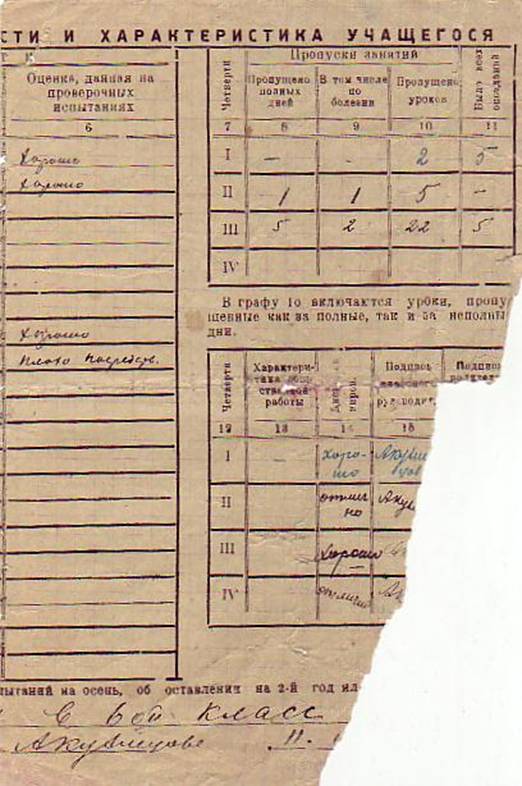 СТИ И ХАРАКТЕРИСТИКА УЧАЩЕГОСЯ
Оценка, данная на
проверочных
испытаниях
6
Хорошо
Хорошо
Хорошо
Плохо Посредств.
Пропуски занятий
Четверти
Пропущено
полных
дней
В том числе
по
болезни
Пропущено
уроков
Было всех
опозданий
7 8 9 10 11
I – - 2 5
II 1 1 5 -
III 5 2 22 5
IV
В графу 10 включаются уроки, пропу
щенные как за полные, так и за неполны
дни.
Четверти
Характери-
тика
ственной
работы
Подпись
классного
руководит.
Подпись
12 13 14 15
I – Хоро-
шо
II отлич
но
III Хорошо
IV отлично
пытаний на осень, об оставлении на 2-й год ил
класс